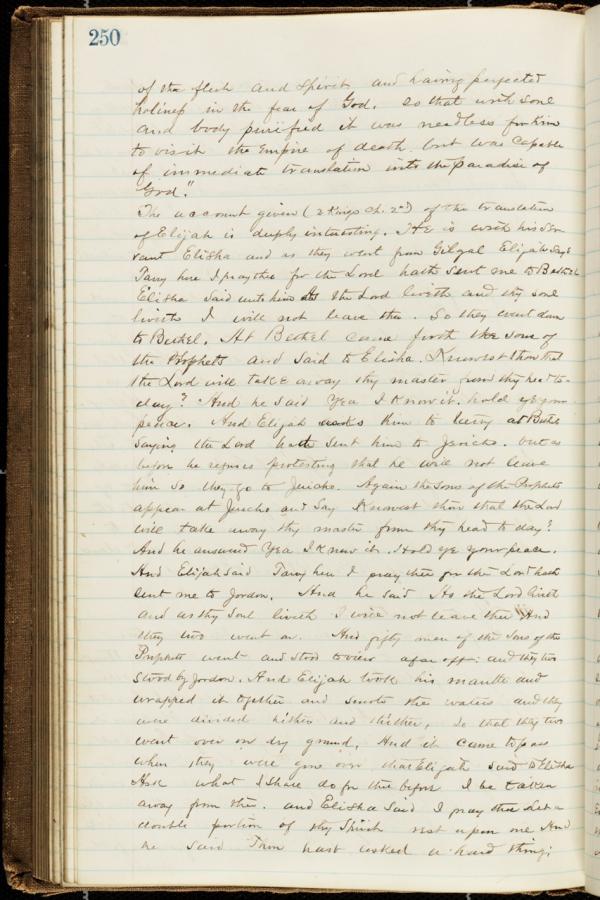 250
of the flesh and Spirit and having perfected
holiness in the fear of God. So that with soul
and body purified it was needless for him
to visit the Empire of death but was capable
of immediate translation into the Paradise of
God."
The account given (2 Kings Ch. 2nd) of the translation
of Elijah is deeply interesting. He is with his Ser
vant Elisha and as they went from Gilgal Elijah says
Tarry here I pray thee for the Lord hath Sent me to Bethel
Elisha Said unto him As the Lord liveth and thy soul
liveth I will not leave thee. So they went down
to Bethel. At Bethel came forth the sons of
the Prophets and Said to Elisha. Knowest thou that
the Lord will take away thy master from thy head to-
day? And he said Yea I know it. hold ye your
peace. And Elijah asks him to tarry at Bethel
Saying the Lord hath Sent him to Jericho. but as
before he refuses protesting that he will not leave
him So they go to Jericho. Again the Sons of the Prophets
appear at Jericho and Say Knowest thou that the Lord
will take away thy master from thy head to day?
And he answered Yea I know it. Hold ye your peace.
And Elijah Said Tarry here I pray thee for the Lord hath
Sent me to Jordon. And he Said As the Lord liveth
and as thy Soul liveth I will not leave thee And
they two went on. And fifty men of the Sons of the
Prophets went and stood to view afar off: and they two
stood by Jordon. And Elijah took his mantle and
wrapped it together and smote the waters and they
were divided hither and thither, So that they two
went over on dry ground. And it came to pass
when they were gone over that Elijah said to Elisha
Ask what I shall do for thee before I be taken
away from thee. and Elisha Said I pray thee Let a
double portion of thy Spirit rest upon me And
he Said Thou hast asked a hard thing;